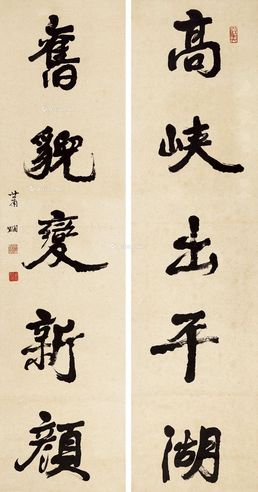 高峡出平湖
舊貌變新顔
蕭嫻